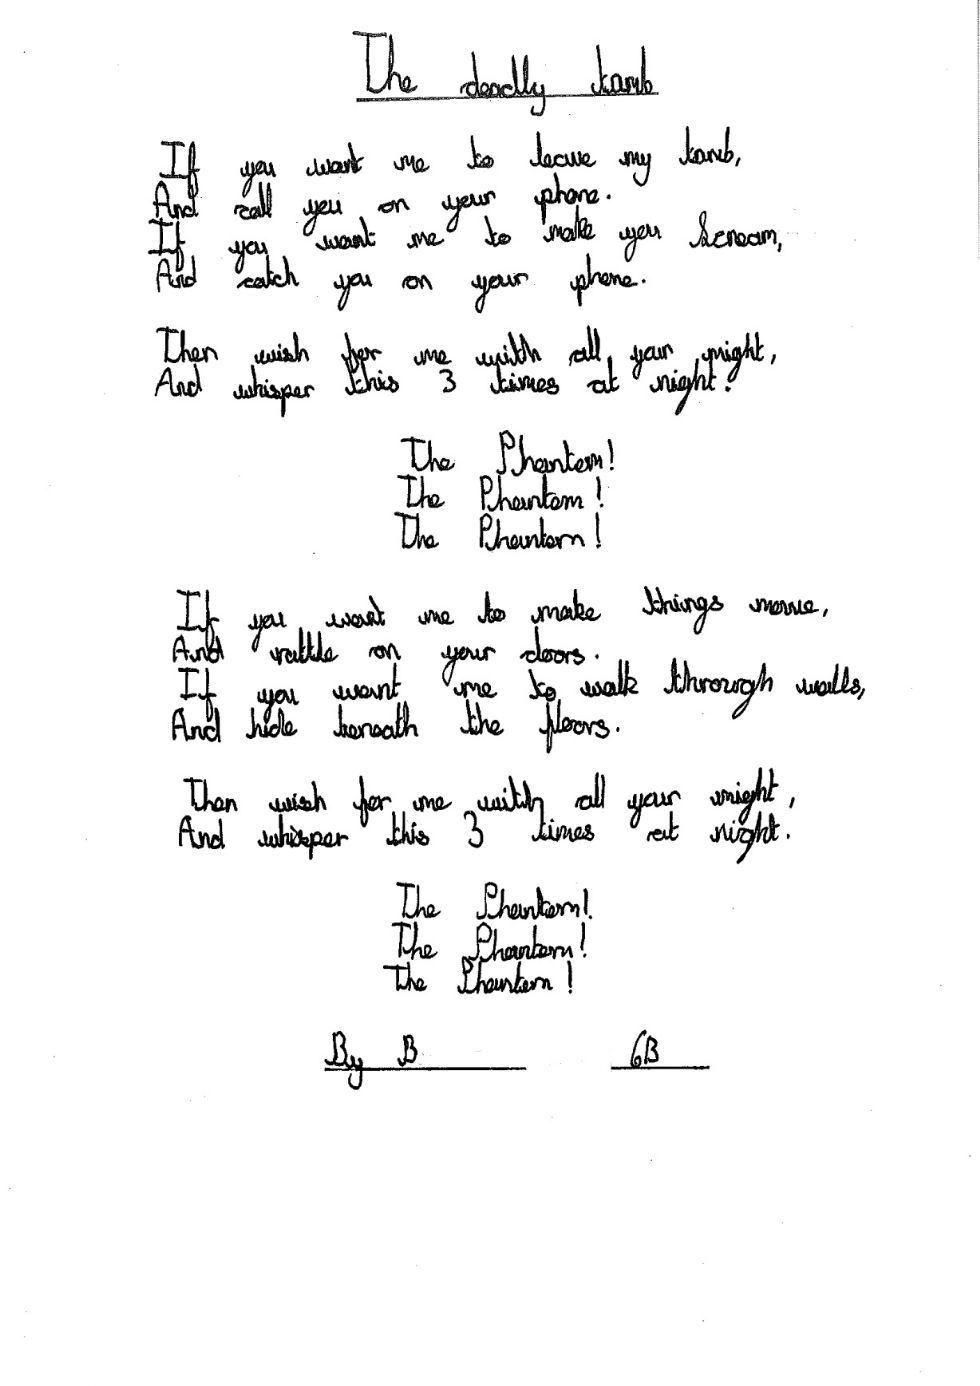 The deadly tomb
If you want me to leave my tomb,
And call you on your phone.
If you want me to make you Scream,
And catch you on your phone.
Then wish for me with all your might,
And whisper this 3 times at night.
The Phantom!
The Phantom!
The Phantom!
If you want me to make things move,
And rattle on your doors.
If you want me to walk through walls,
And hide beneath the floors.
Then wish for me with all your might,
And whisper this 3 times at night.
The Phantom!
The Phantom!
The Phantom!
By B 6B